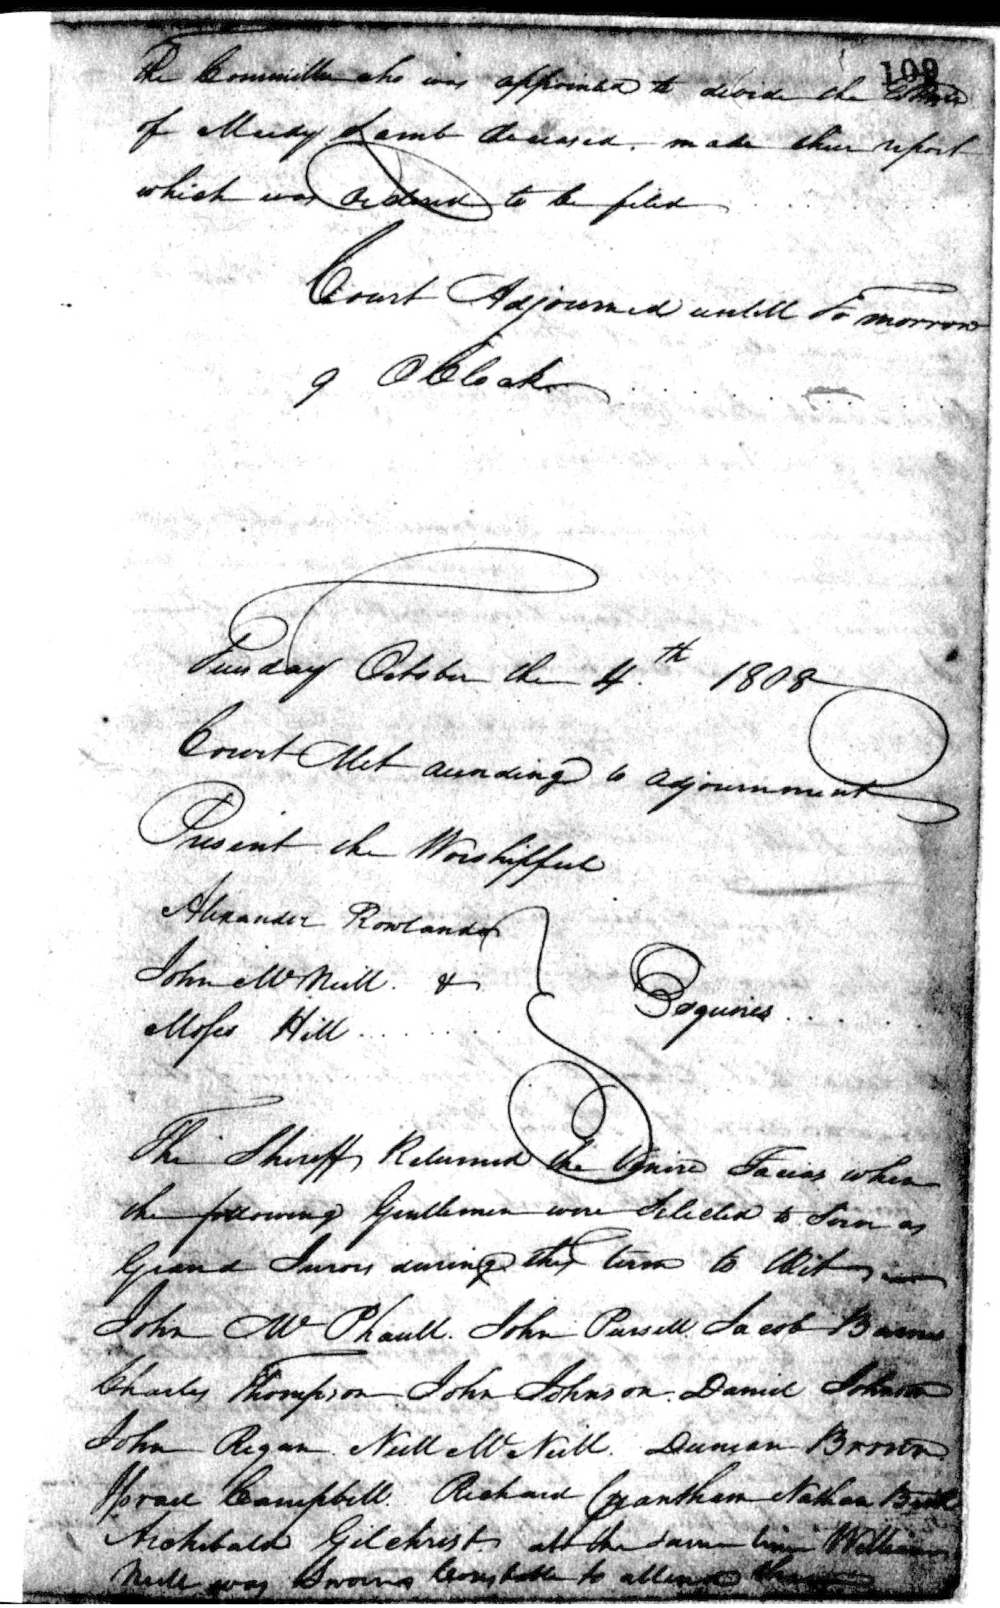 109
The Committee who was appointed to devide the Estate
of Meedy Lamb deceased. made their report
which was Ordered to be filed
Court Adjourned untill To morrow
9 OClock
Tuesday October the 4th 1808
Court Met according to adjournment
Present the Worshipfull
Alexander Rowland
John McNeill &
Moses Hill
Esquires
The Sheriff Returned the Venire Facias when
the following Gentlemen were Selected to Serve as
Grand Jurors during this term to Wit
John McPhaull. John Pursell. Jacob Barnes
Charles Thompson John Johnson. Daniel Johnson
John Regan. Neill McNeill. Duncan Brown
Israel Campbell. Richard Grantham Nathan
Archibald Gilchrist at the same time William
Neill was Sworn Constable to attend them